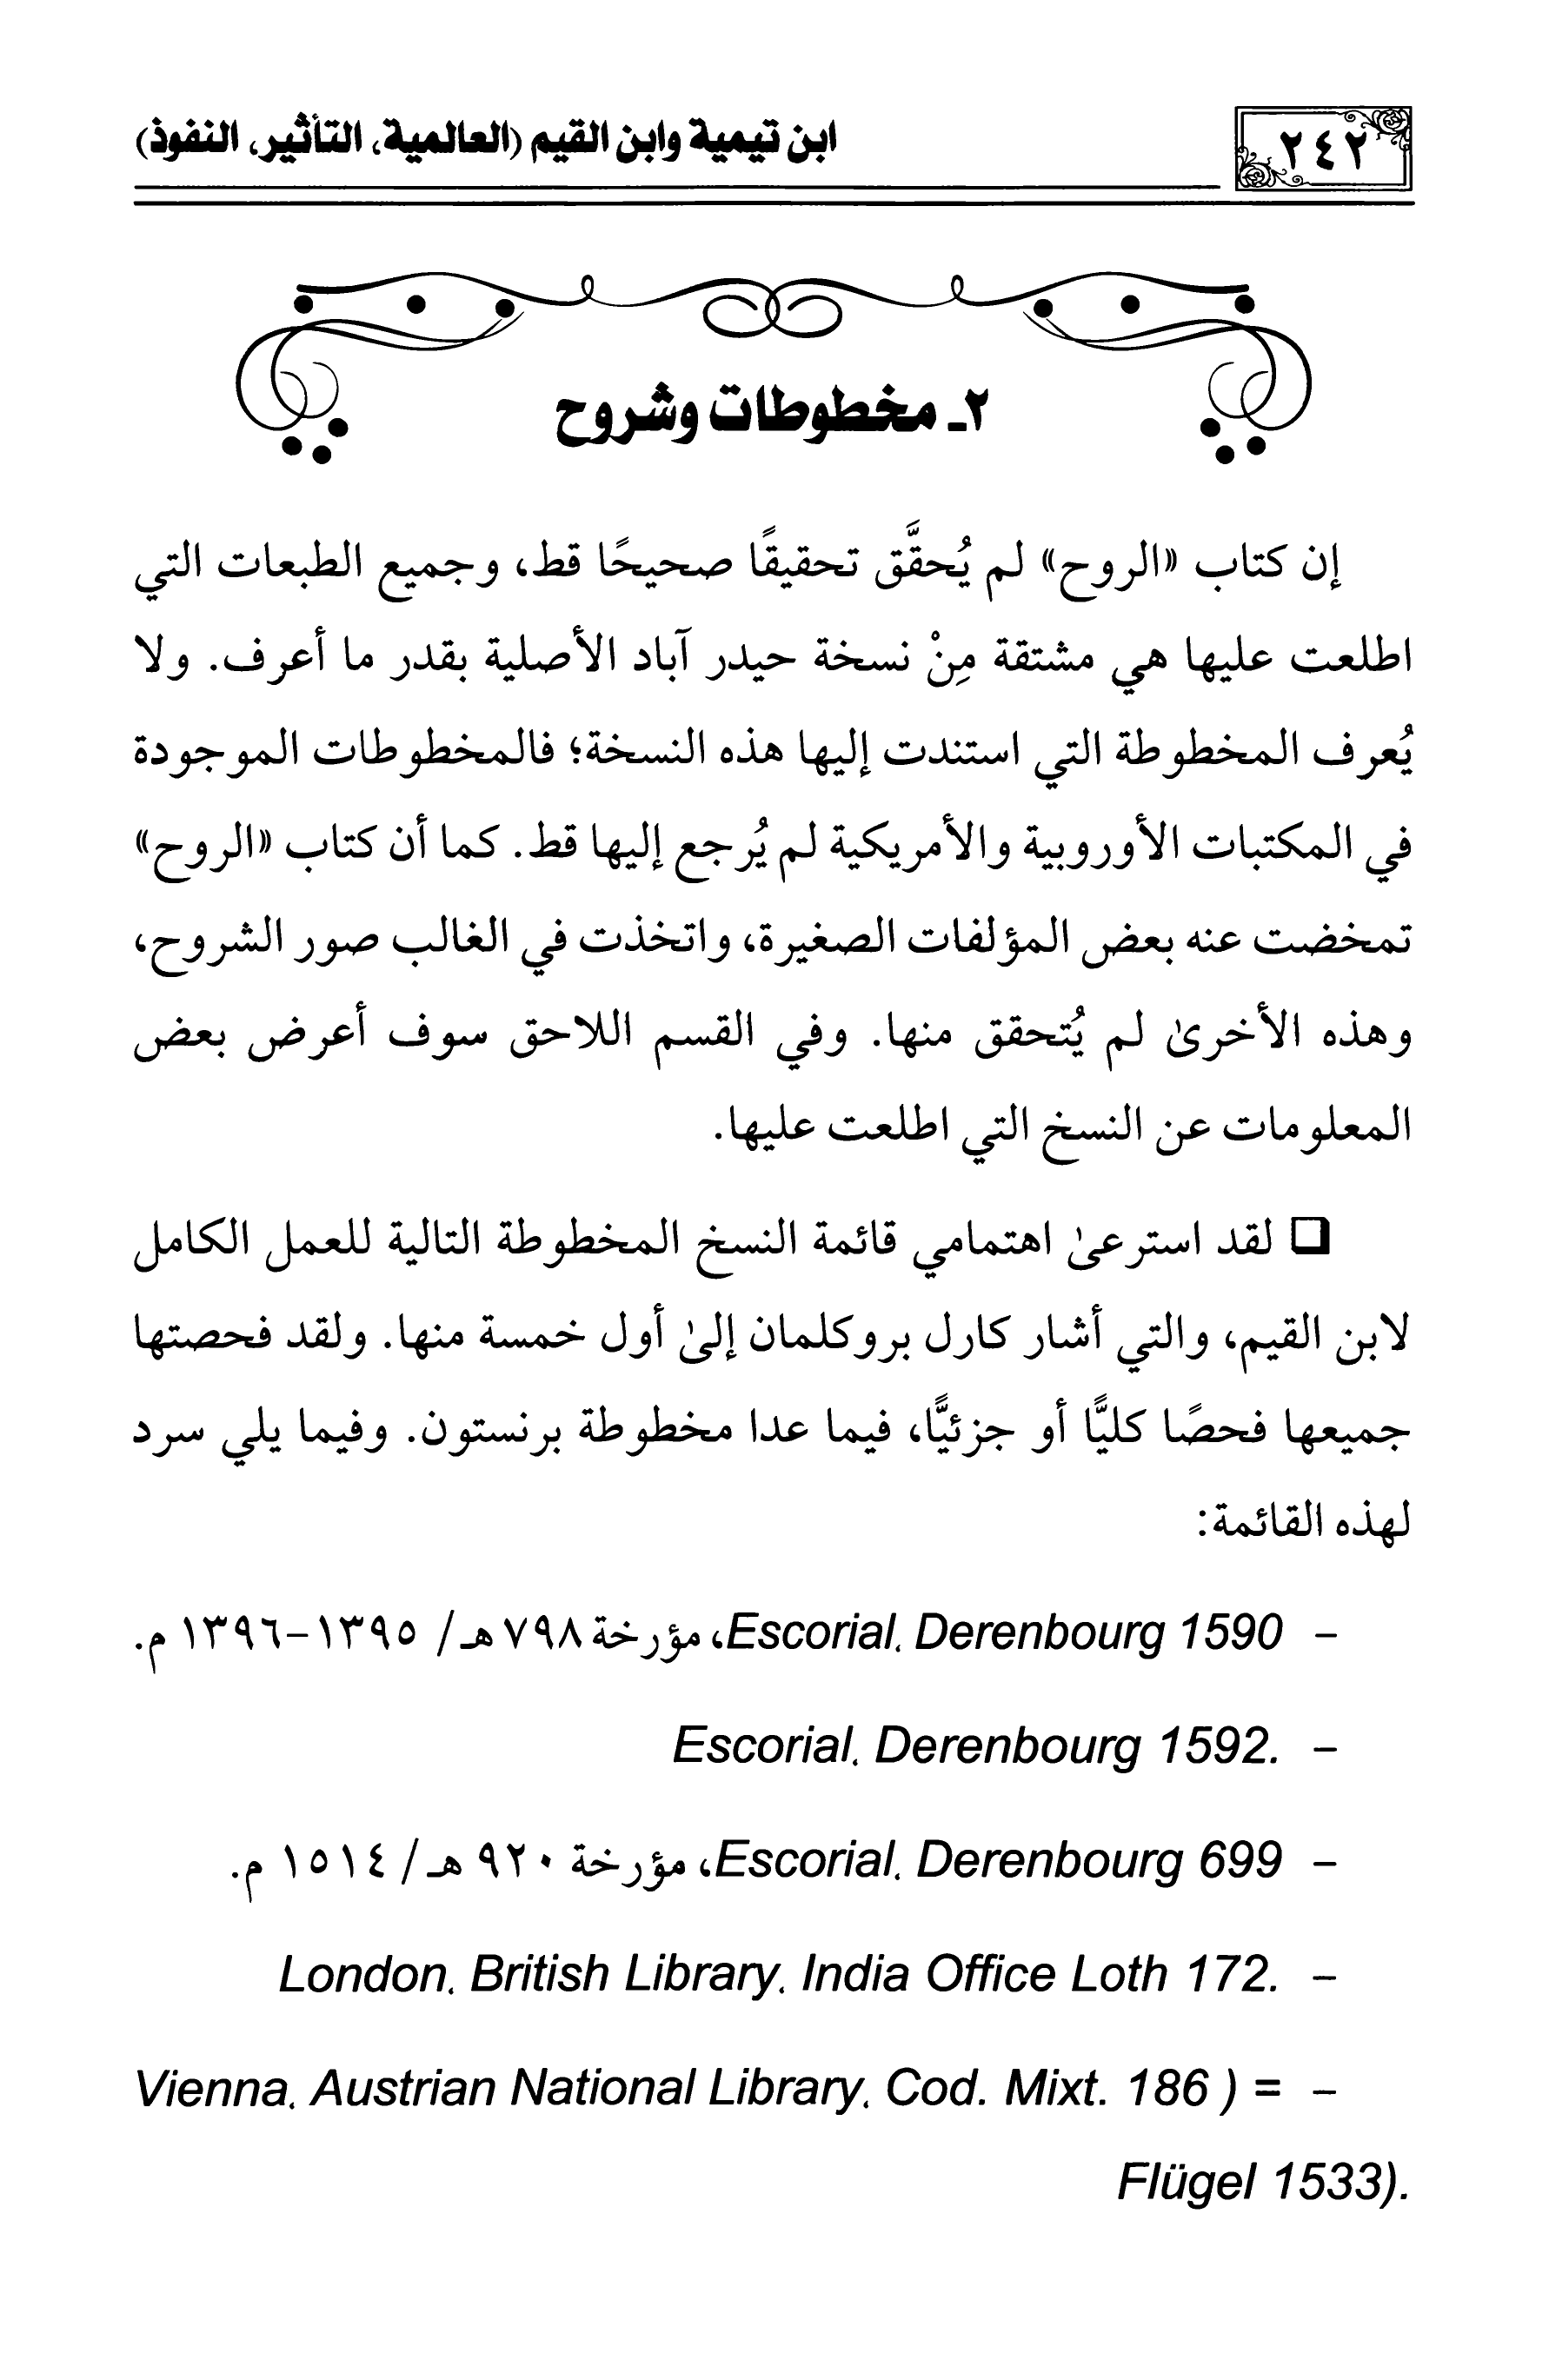 ٢٤٢
ابن تيمية وابن القيم (العالمية، التأثير، النفوذ)
٢ـ مخطوطات وشروح
إن كتاب «الروح» لم يُحقَّق تحقيقًا صحيحًا قط، وجميع الطبعات التي
اطلعت عليها هي مشتقة مِنْ نسخة حيدر آباد الأصلية بقدر ما أعرف. ولا
يُعرف المخطوطة التي استندت إليها هذه النسخة؛ فالمخطوطات الموجودة
في المكتبات الأوروبية والأمريكية لم يُرجع إليها قط. كما أن كتاب «الروح»
تمخضت عنه بعض المؤلفات الصغيرة، واتخذت في الغالب صور الشروح،
وهذه الأخرىٰ لم يُتحقق منها. وفي القسم اللاحق سوف أعرض بعض
المعلومات عن النسخ التي اطلعت عليها.
❑ لقد استرعىٰ اهتمامي قائمة النسخ المخطوطة التالية للعمل الكامل
لابن القيم، والتي أشار كارل بروكلمان إلىٰ أول خمسة منها. ولقد فحصتها
جميعها فحصًا كليًّا أو جزئيًّا، فيما عدا مخطوطة برنستون. وفيما يلي سرد
لهذه القائمة:
- Escorial، Derenbourg 1590، مؤرخة ٧٩٨هـ/ ١٣٩٥-١٣٩٦ م.
- Escorial، Derenbourg 1592.
- Escorial، Derenbourg 699، مؤرخة ٩٢٠ هـ/ ١٥١٤ م.
- London، British Library، India Office Loth 172.
- Vienna، Austrian National Library، Cod. Mixt. 186 ) =
Flügel 1533).